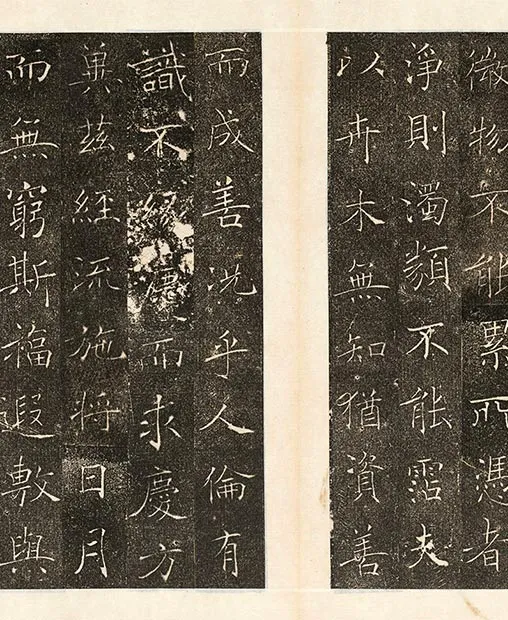 微物不能累所憑者
淨則濁類不能霑夫
以卉木無知猶資善
而成善況乎人倫有
識不緣慶而求慶方
冀茲經流施將日月
而無窮斯福遐敷與